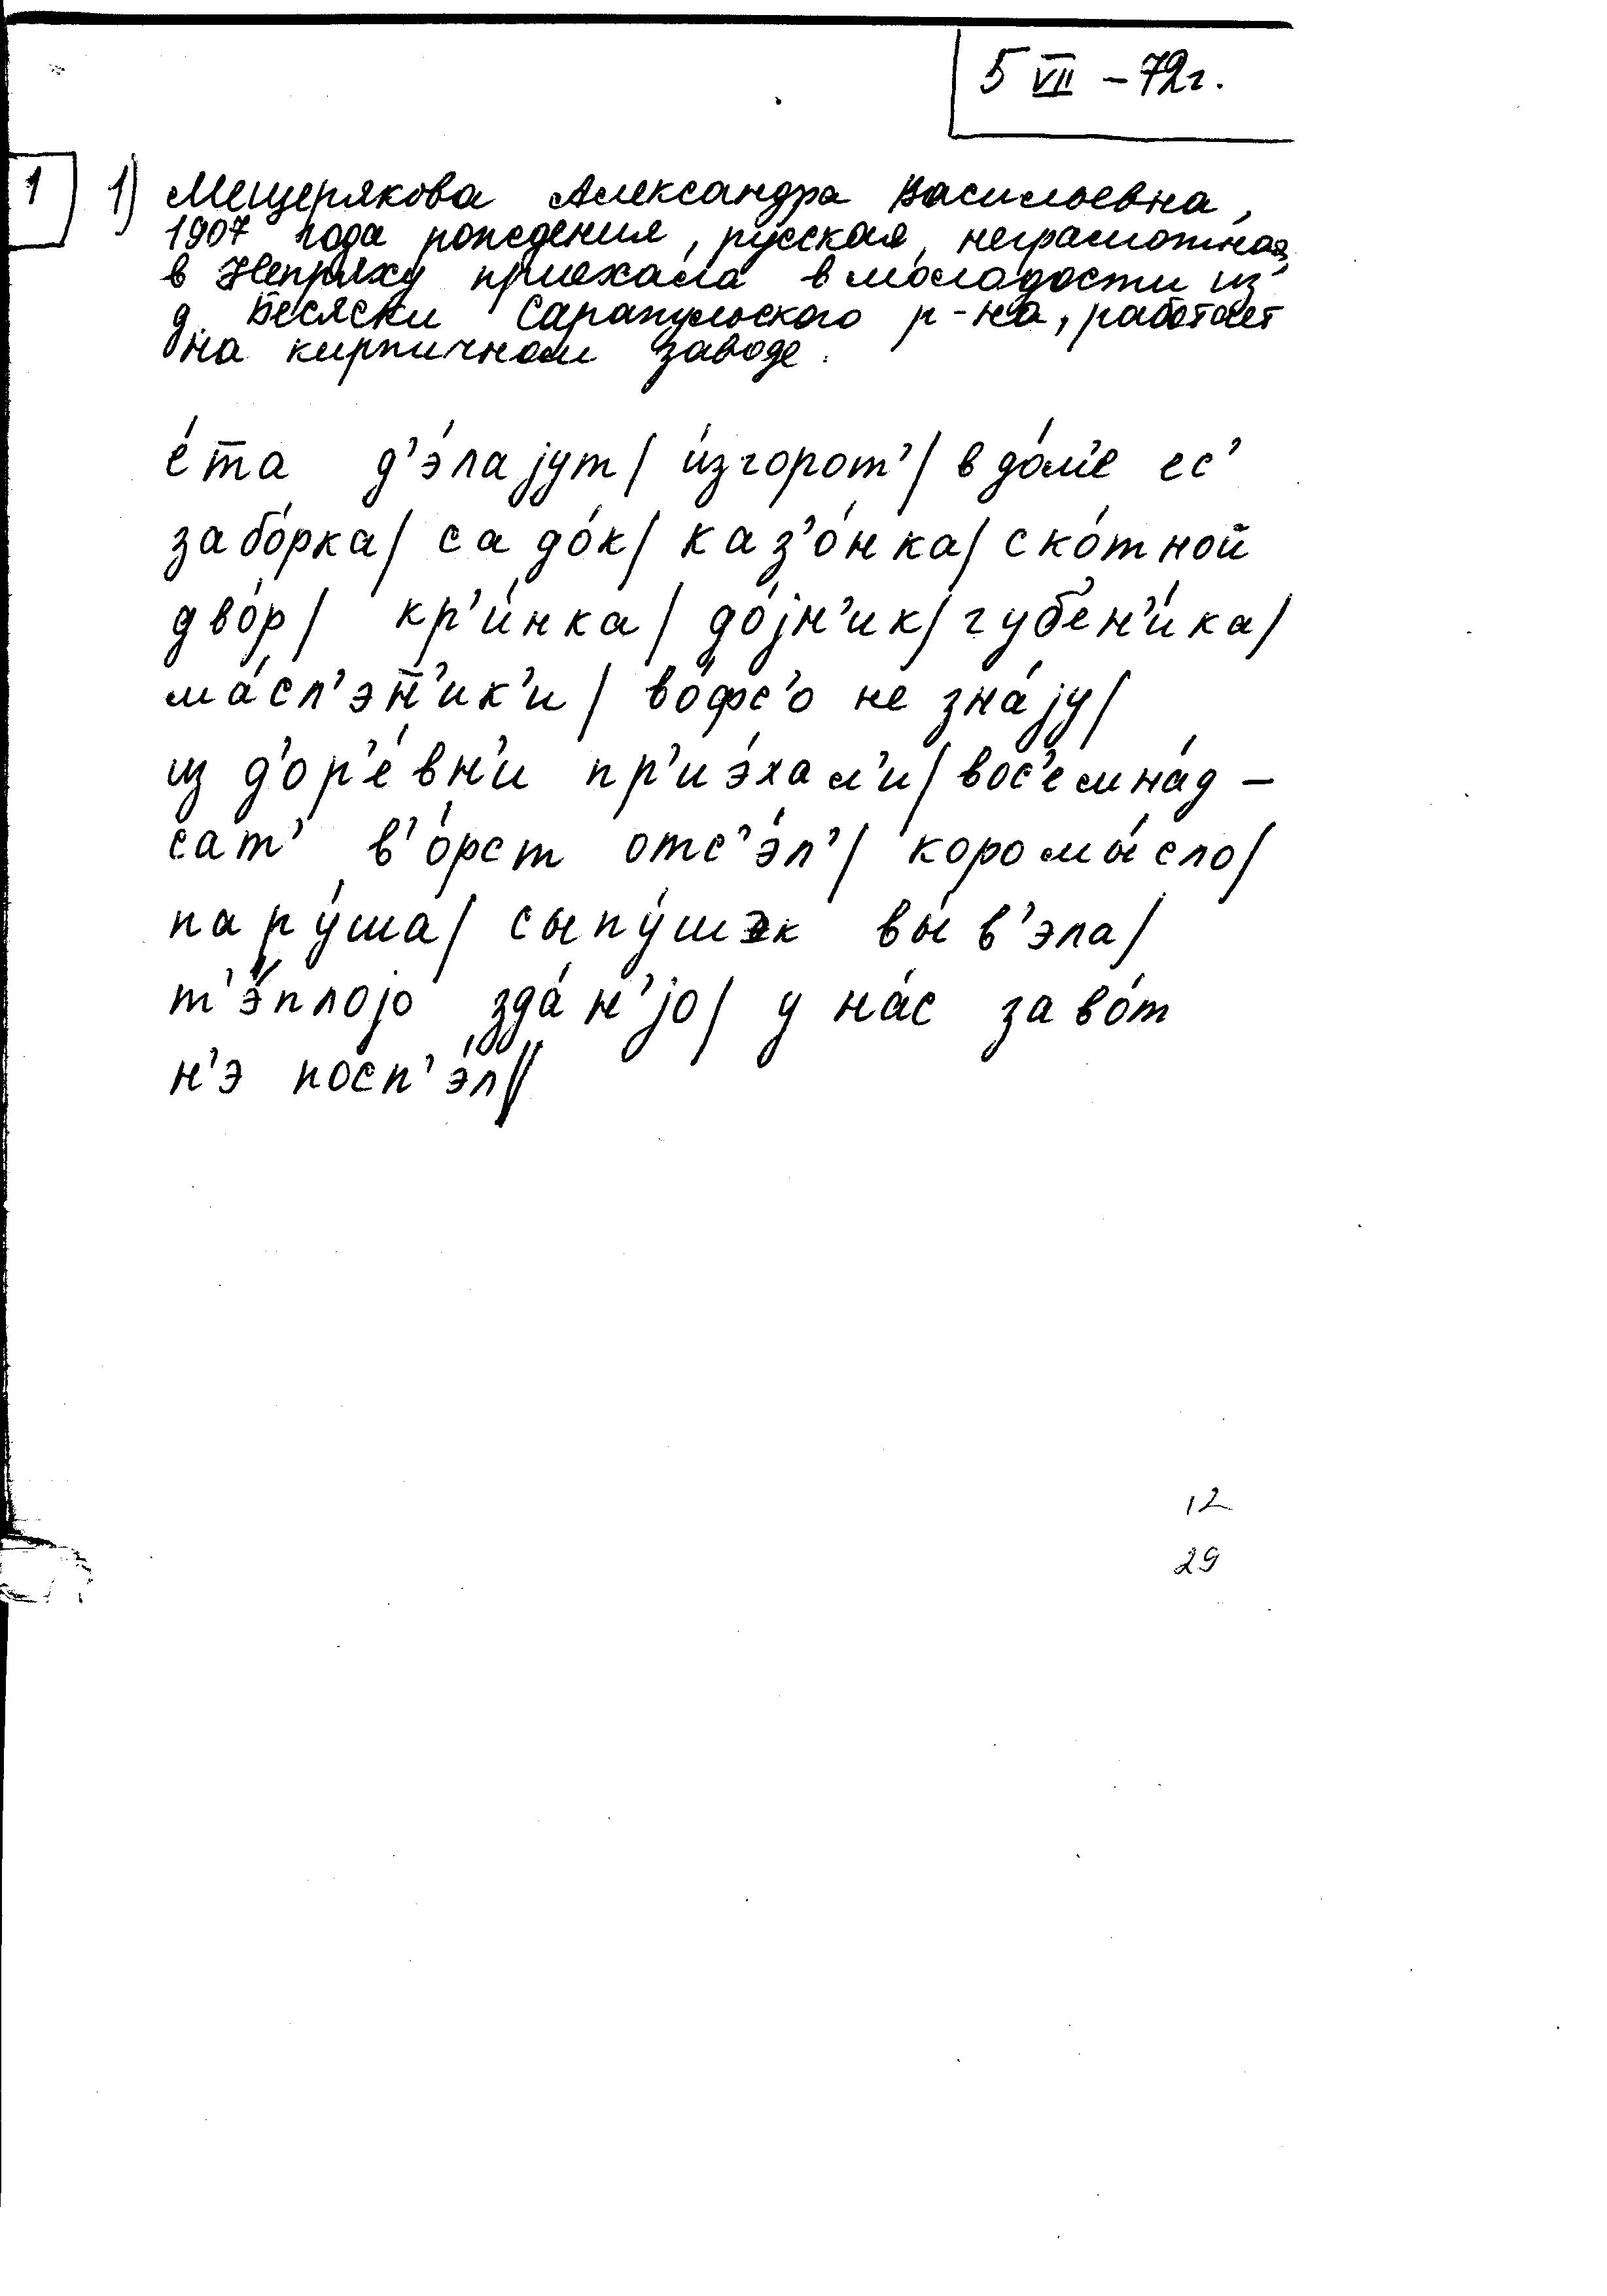 5 VII – 72г.
1 1) Мещерякова Александра Васильевна,
1907 года рождения, русская, неграмотная,
в Непряху приехала в молодости из
д. Бесяски Сарапульского р-на, работает
на кирпичном заводе.
е́та д’э́лаjут/ и́згорот’/ в до́м’е ес’
забо́рка/ садо́к/ каз’о́нка/ ско́тной
дво́р/ кр’и́нка/ до́jн’ик/ губ’ен’и́ка/
ма́сл’эн’ик’и/ во́фс’о не зна́jу/
из д’ор’е́вн’и пр’иэ́хал’и/ вос’емна́д-
сат’ в’о́рст отс’э́л’/ коромы́сло/
пару́ша/ сыпу́шэк вы́в’эла/
т’э́плоjо зда́н’jо/ у на́с заво́т
н’э посп’э́л//
12
29